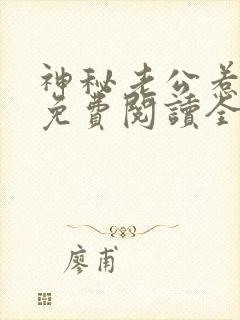 神秘老公惹
免費閱讀全
廖甫